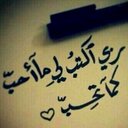 ربي اكتب لي ما أحبّ
كما تحبّ ♡